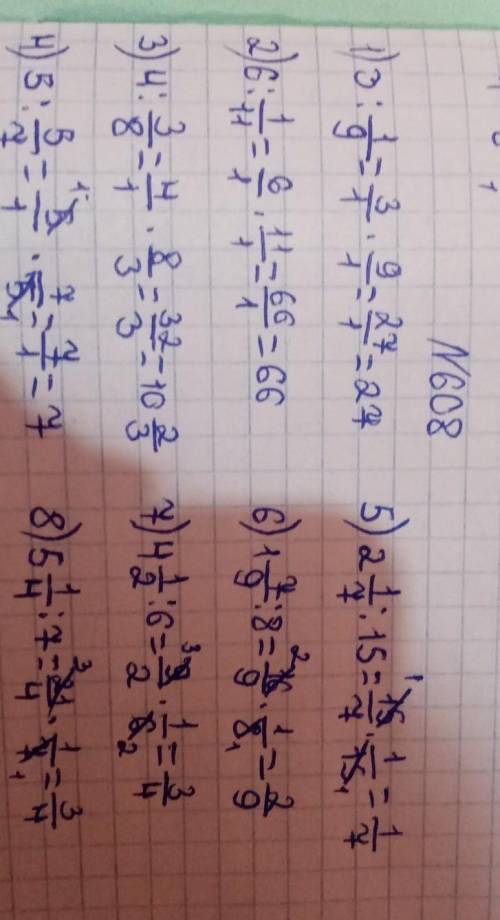 N608
1) 3 : 1/9 = 3/1 · 9/1 = 27/1 = 27
2) 6 : 1/11 = 6/1 · 11/1 = 66/1 = 66
3) 4 : 3/8 = 4/1 · 8/3 = 32/3 = 10 2/3
4) 5 : 5/7 = 5/1 · 7/5 = 7/1 = 7
5) 2 1/7 : 15 = 15/7 · 1/15 = 1/7
6) 1 7/9 : 8 = 16/9 · 1/8 = 2/9
7) 4 1/2 : 6 = 9/2 · 1/6 = 3/4
8) 5 1/4 : 7 = 21/4 · 1/7 = 3/4